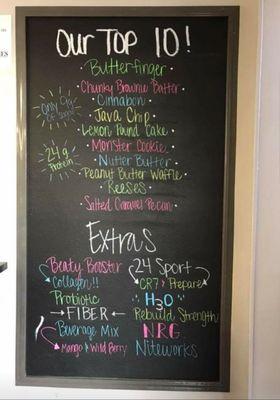 Our Top 10!
Butterfinger
Chunky Brownie Batter
Cinnabon
Java Chip
Lemon Pound Cake
Monster Cookie
Nutter Butter
Peanut Butter Waffle
Reeses
Salted Caramel Pecan
Only 9g
OF Sugar
24g
Protein
Extras
Beaty Booster
Collagen!!
Probiotic
FIBER
Beverage Mix
Mango & Wild Berry
24 Sport
CR7 & Prepare
H3O
Rebuild Strength
NRG
Niteworks